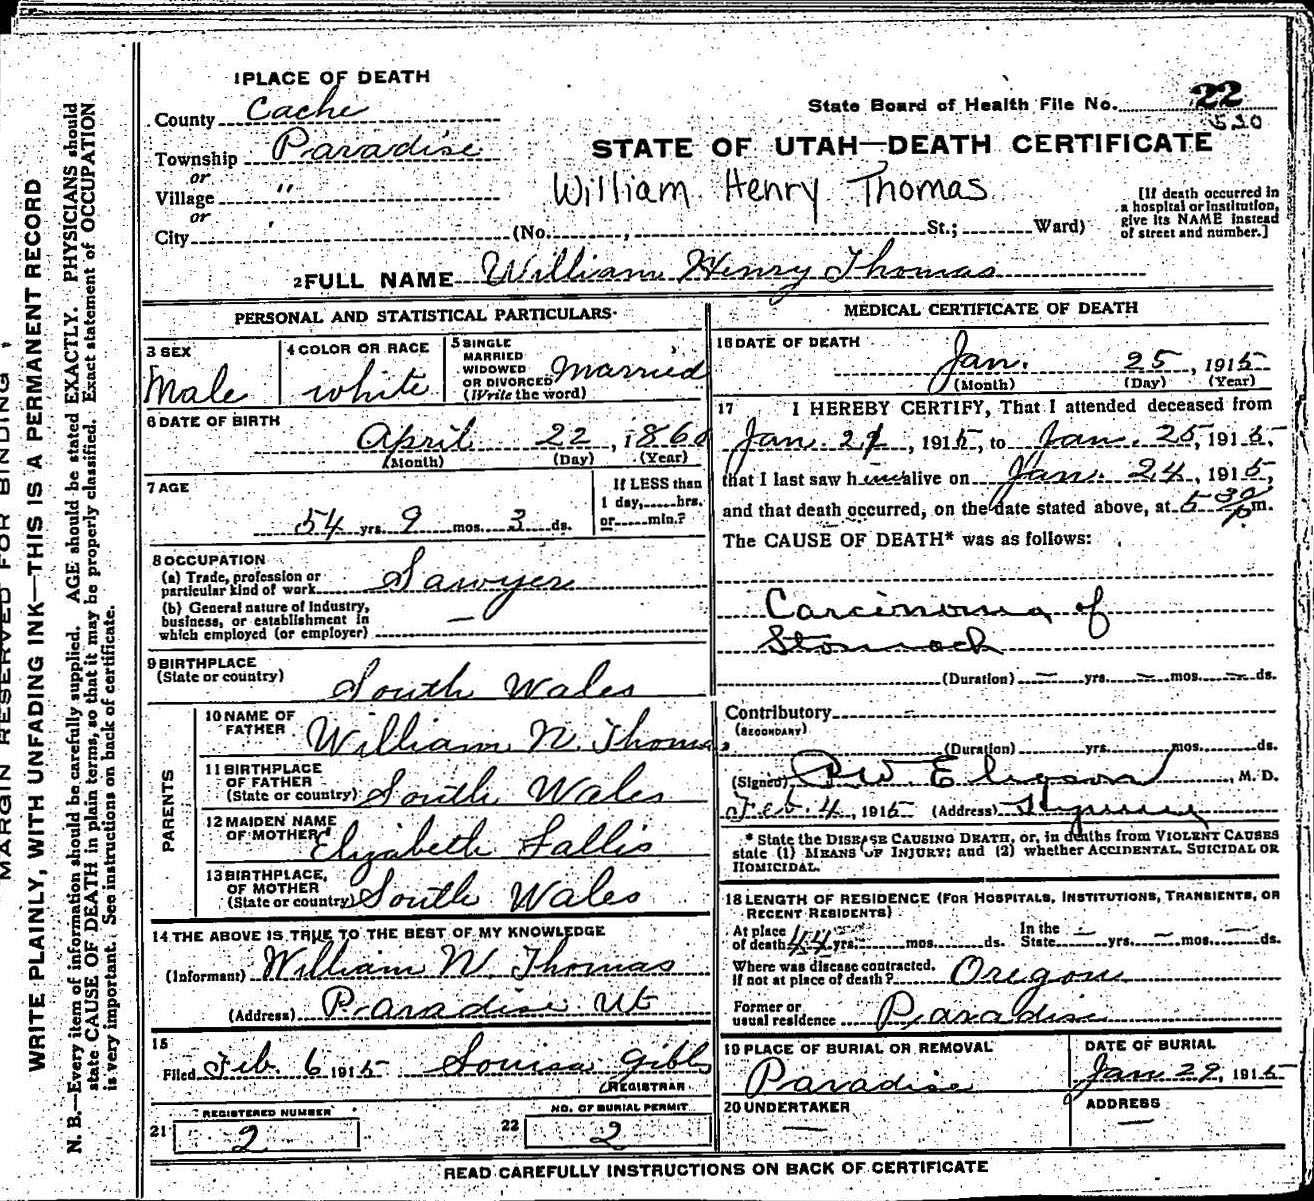 1 PLACE OF DEATH
County Cache
State Board of Health File No. 22
530
Township Paradise
STATE OF UTAH—DEATH CERTIFICATE
or
Village "
William Henry Thomas
[If death occurred in
a hospital or institution,
give its NAME instead
of street and number.]
or
City (No. , St.; Ward)
2 FULL NAME William Henry Thomas
PERSONAL AND STATISTICAL PARTICULARS
3 SEX
Male
4 COLOR OR RACE
white
5 SINGLE
MARRIED
WIDOWED
OR DIVORCED
(Write the word)
Married
6 DATE OF BIRTH
April 22, 1860
(Month) (Day) (Year)
7 AGE
54 yrs. 9 mos. 3 ds.
If LESS than
1 day, hrs.
or min.?
8 OCCUPATION
(a) Trade, profession or
particular kind of work Sawyer
(b) General nature of industry,
business, or establishment in
which employed (or employer) —
9 BIRTHPLACE
(State or country)
South Wales
PARENTS
10 NAME OF
FATHER
William N. Thomas
11 BIRTHPLACE
OF FATHER
(State or country) South Wales
12 MAIDEN NAME
OF MOTHER Elizabeth Fallis
13 BIRTHPLACE
OF MOTHER
(State or country) South Wales
14 THE ABOVE IS TRUE TO THE BEST OF MY KNOWLEDGE
(Informant) William N. Thomas
(Address) Paradise Ut
15
Filed Feb 6 1915 Louisa Gibbs
REGISTRAR
21 REGISTERED NUMBER
2
22 NO. OF BURIAL PERMIT
2
MEDICAL CERTIFICATE OF DEATH
16 DATE OF DEATH
Jan. 25, 1915
(Month) (Day) (Year)
17 I HEREBY CERTIFY, That I attended deceased from
Jan. 21, 1915, to Jan. 25, 1915,
that I last saw him alive on Jan. 24, 1915,
and that death occurred, on the date stated above, at 5 30 p m.
The CAUSE OF DEATH* was as follows:
Carcinoma of
Stomach
(Duration) — yrs. — mos. — ds.
Contributory
(SECONDARY)
(Duration) yrs. mos. ds.
(Signed) , M. D.
Feb. 4, 1915 (Address) Hyrum
* State the DISEASE CAUSING DEATH, or, in deaths from VIOLENT CAUSES
state (1) MEANS OF INJURY; and (2) whether ACCIDENTAL, SUICIDAL OR
HOMICIDAL.
18 LENGTH OF RESIDENCE (FOR HOSPITALS, INSTITUTIONS, TRANSIENTS, OR
RECENT RESIDENTS)
At place
of death 44 yrs. mos. ds.
In the
State — yrs. — mos. — ds.
Where was disease contracted,
if not at place of death? Oregon
Former or
usual residence Paradise
19 PLACE OF BURIAL OR REMOVAL
Paradise
DATE OF BURIAL
Jan 29, 1915
20 UNDERTAKER
—
ADDRESS
—
READ CAREFULLY INSTRUCTIONS ON BACK OF CERTIFICATE
MARGIN RESERVED FOR BINDING
WRITE PLAINLY, WITH UNFADING INK—THIS IS A PERMANENT RECORD
N. B.—Every item of information should be carefully supplied. AGE should be stated EXACTLY. PHYSICIANS should
state CAUSE OF DEATH in plain terms, so that it may be properly classified. Exact statement of OCCUPATION
is very important. See instructions on back of certificate.